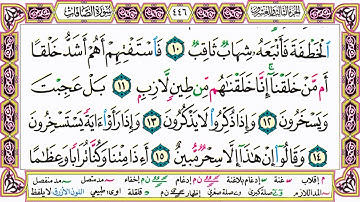 سُورَةُ الصَّافَّاتِ ٤٤٦
الْخَطْفَةَ فَأَتْبَعَهُ شِهَابٌ ثَاقِبٌ ١٠ فَاسْتَفْتِهِمْ أَهُمْ أَشَدُّ خَلْقًا
أَم مَّنْ خَلَقْنَا إِنَّا خَلَقْنَاهُم مِّن طِينٍ لَّازِبٍ ١١ بَلْ عَجِبْتَ
وَيَسْخَرُونَ ١٢ وَإِذَا ذُكِّرُوا لَا يَذْكُرُونَ ١٣ وَإِذَا رَأَوْا آيَةً يَسْتَسْخِرُونَ
١٤ وَقَالُوا إِنْ هَٰذَا إِلَّا سِحْرٌ مُّبِينٌ ١٥ أَإِذَا مِتْنَا وَكُنَّا تُرَابًا وَعِظَامًا